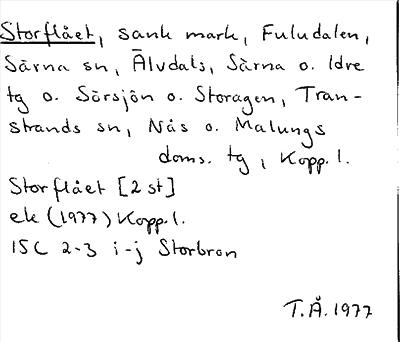 Storflået, sank mark, Fuludalen,
Särna sn, Älvdals, Särna o. Idre
tg o. Sörsjön o. Storagen, Tran-
strands sn, Nås o. Malungs
doms. tg, Kopp. l.
Storflået [2 st]
ek (1977) Kopp. l.
15C 2-3 i-j Storbron
T.Å. 1977